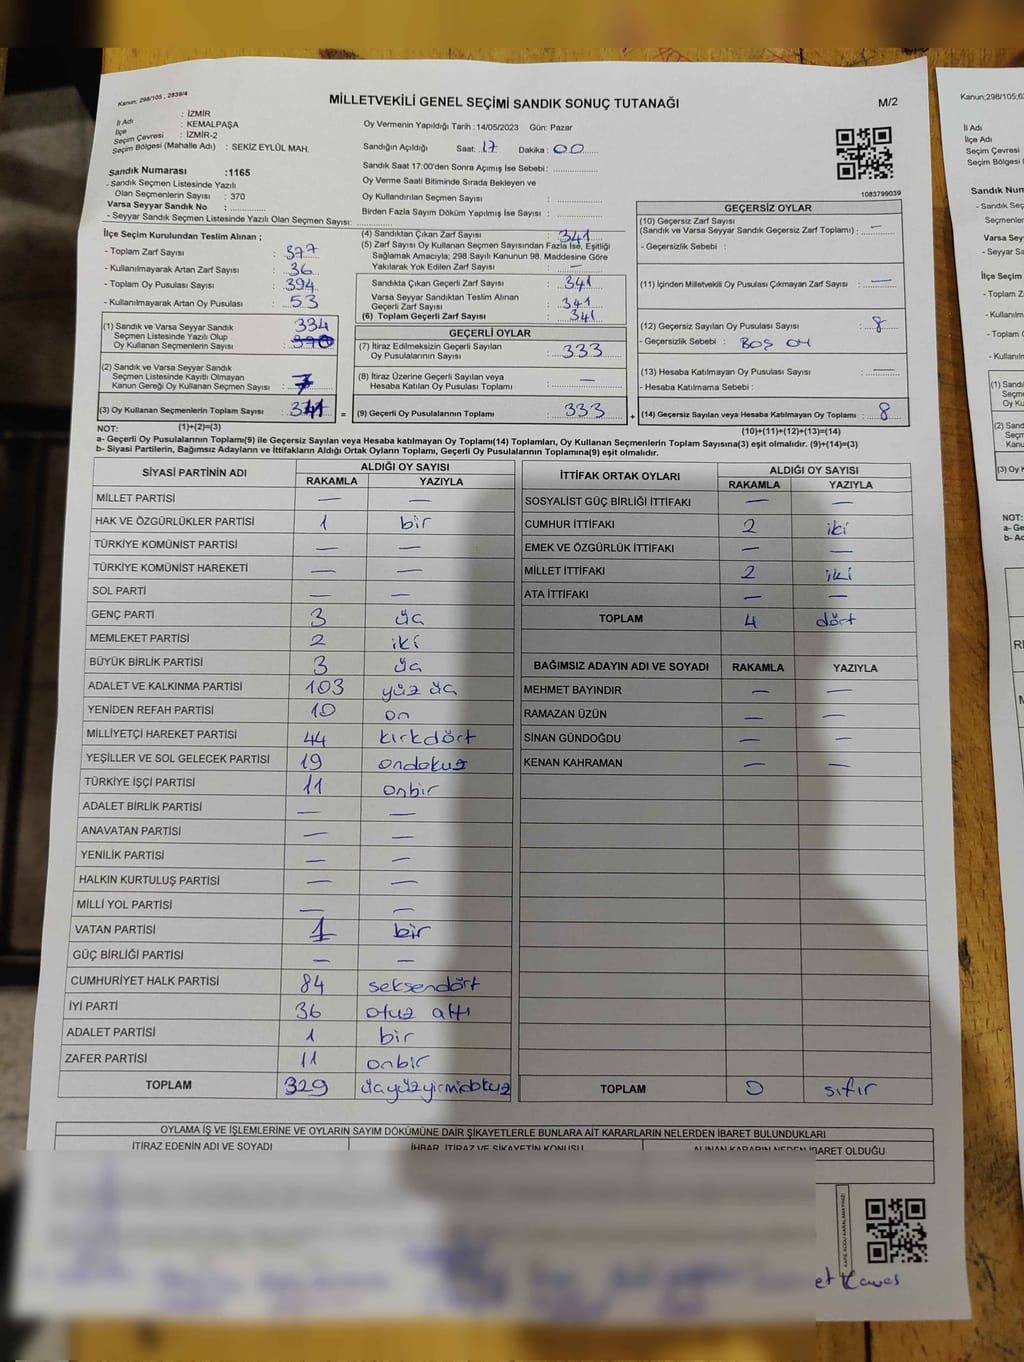 Kanun; 298/105 , 2839/4
MİLLETVEKİLİ GENEL SEÇİMİ SANDIK SONUÇ TUTANAĞI
M/2
İl Adı : İZMİR
İlçe : KEMALPAŞA
Seçim Çevresi : İZMİR-2
Seçim Bölgesi (Mahalle Adı) : SEKİZ EYLÜL MAH.
Oy Vermenin Yapıldığı Tarih : 14/05/2023 Gün: Pazar
Sandığın Açıldığı Saat: 17 Dakika: 00
Sandık Saat 17:00'den Sonra Açımış İse Sebebi :
Oy Verme Saati Bitiminde Sırada Bekleyen ve
Oy Kullandırılan Seçmen Sayısı :
Birden Fazla Sayım Döküm Yapılmış İse Sayısı :
1083799039
Sandık Numarası :1165
- Sandık Seçmen Listesinde Yazılı
Olan Seçmenlerin Sayısı : 370
Varsa Seyyar Sandık No :
- Seyyar Sandık Seçmen Listesinde Yazılı Olan Seçmen Sayısı:
İlçe Seçim Kurulundan Teslim Alınan ;
- Toplam Zarf Sayısı : 377
- Kullanılmayarak Artan Zarf Sayısı : 36
- Toplam Oy Pusulası Sayısı : 394
- Kullanılmayarak Artan Oy Pusulası : 53
(1) Sandık ve Varsa Seyyar Sandık 334
Seçmen Listesinde Yazılı Olup
Oy Kullanan Seçmenlerin Sayısı :
(2) Sandık ve Varsa Seyyar Sandık
Seçmen Listesinde Kayıtlı Olmayan
Kanun Gereği Oy Kullanan Seçmen Sayısı : 7
(3) Oy Kullanan Seçmenlerin Toplam Sayısı : 341 =
(1)+(2)=(3)
(4) Sandıktan Çıkan Zarf Sayısı : 341
(5) Zarf Sayısı Oy Kullanan Seçmen Sayısından Fazla İse, Eşitliği
Sağlamak Amacıyla; 298 Sayılı Kanunun 98. Maddesine Göre
Yakılarak Yok Edilen Zarf Sayısı : —
Sandıkta Çıkan Geçerli Zarf Sayısı : 341
Varsa Seyyar Sandıktan Teslim Alınan
Geçerli Zarf Sayısı : 341
(6) Toplam Geçerli Zarf Sayısı : 341
GEÇERLİ OYLAR
(7) İtiraz Edilmeksizin Geçerli Sayılan
Oy Pusulalarının Sayısı : 333
(8) İtiraz Üzerine Geçerli Sayılan veya
Hesaba Katılan Oy Pusulası Toplamı : —
(9) Geçerli Oy Pusulalarının Toplamı : 333 +
GEÇERSİZ OYLAR
(10) Geçersiz Zarf Sayısı
(Sandık ve Varsa Seyyar Sandık Geçersiz Zarf Toplamı) : —
- Geçersizlik Sebebi :
(11) İçinden Milletvekili Oy Pusulası Çıkmayan Zarf Sayısı : —
(12) Geçersiz Sayılan Oy Pusulası Sayısı : 8
- Geçersizlik Sebebi : BOŞ OY
(13) Hesaba Katılmayan Oy Pusulası Sayısı : —
- Hesaba Katılmama Sebebi :
(14) Geçersiz Sayılan veya Hesaba Katılmayan Oy Toplamı : 8
(10)+(11)+(12)+(13)=(14)
NOT:
a- Geçerli Oy Pusulalarının Toplamı(9) ile Geçersiz Sayılan veya Hesaba katılmayan Oy Toplamı(14) Toplamları, Oy Kullanan Seçmenlerin Toplam Sayısına(3) eşit olmalıdır. (9)+(14)=(3)
b- Siyasi Partilerin, Bağımsız Adayların ve İttifakların Aldığı Ortak Oyların Toplamı, Geçerli Oy Pusulalarının Toplamına(9) eşit olmalıdır.
SİYASİ PARTİNİN ADI ALDIĞI OY SAYISI
RAKAMLA YAZIYLA
MİLLET PARTİSİ — —
HAK VE ÖZGÜRLÜKLER PARTİSİ 1 bir
TÜRKİYE KOMÜNİST PARTİSİ — —
TÜRKİYE KOMÜNİST HAREKETİ — —
SOL PARTİ — —
GENÇ PARTİ 3 üç
MEMLEKET PARTİSİ 2 iki
BÜYÜK BİRLİK PARTİSİ 3 üç
ADALET VE KALKINMA PARTİSİ 103 yüz üç
YENİDEN REFAH PARTİSİ 10 on
MİLLİYETÇİ HAREKET PARTİSİ 44 kırkdört
YEŞİLLER VE SOL GELECEK PARTİSİ 19 ondokuz
TÜRKİYE İŞÇİ PARTİSİ 11 onbir
ADALET BİRLİK PARTİSİ — —
ANAVATAN PARTİSİ — —
YENİLİK PARTİSİ — —
HALKIN KURTULUŞ PARTİSİ — —
MİLLİ YOL PARTİSİ — —
VATAN PARTİSİ 1 bir
GÜÇ BİRLİĞİ PARTİSİ — —
CUMHURİYET HALK PARTİSİ 84 seksendört
İYİ PARTİ 36 otuz altı
ADALET PARTİSİ 1 bir
ZAFER PARTİSİ 11 onbir
TOPLAM 329 üçyüzyirmidokuz
İTTİFAK ORTAK OYLARI ALDIĞI OY SAYISI
RAKAMLA YAZIYLA
SOSYALİST GÜÇ BİRLİĞİ İTTİFAKI — —
CUMHUR İTTİFAKI 2 iki
EMEK VE ÖZGÜRLÜK İTTİFAKI — —
MİLLET İTTİFAKI 2 iki
ATA İTTİFAKI — —
TOPLAM 4 dört
BAĞIMSIZ ADAYIN ADI VE SOYADI RAKAMLA YAZIYLA
MEHMET BAYINDIR — —
RAMAZAN ÜZÜN — —
SİNAN GÜNDOĞDU — —
KENAN KAHRAMAN — —
TOPLAM 0 sıfır
OYLAMA İŞ VE İŞLEMLERİNE VE OYLARIN SAYIM DÖKÜMÜNE DAİR ŞİKAYETLERLE BUNLARA AİT KARARLARIN NELERDEN İBARET BULUNDUKLARI
İTİRAZ EDENİN ADI VE SOYADI İHBAR, İTİRAZ VE ŞİKAYETİN KONUSU ALINAN KARARIN NEDEN İBARET OLDUĞU
Kanun;298/105;6
İl Adı
İlçe Adı
Seçim Çevresi
Seçim Bölgesi
Sandık Num